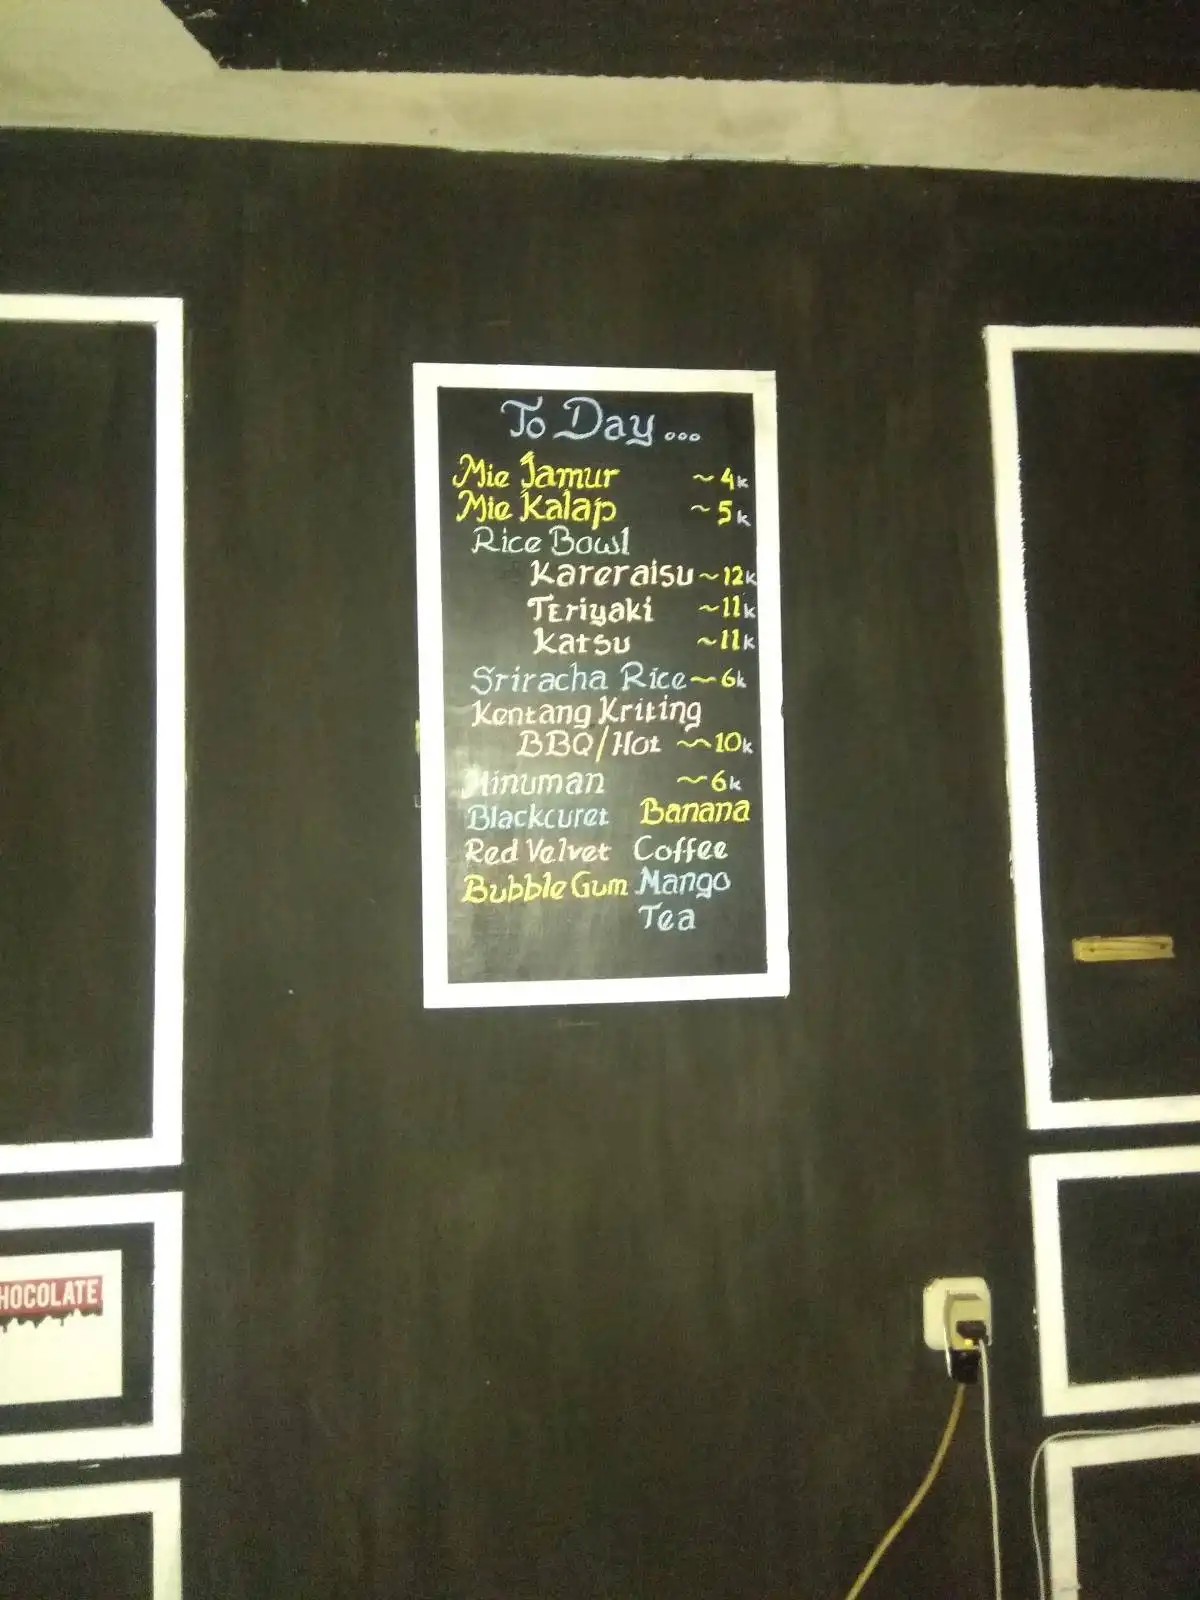 To Day...
Mie Jamur ~4k
Mie Kalap ~5k
Rice Bowl
Kareraisu ~12k
Teriyaki ~11k
Katsu ~11k
Sriracha Rice ~6k
Kentang Kriting
BBQ/Hot ~~10k
Minuman ~6k
Blackcuret Banana
Red Velvet Coffee
Bubble Gum Mango
Tea
HOCOLATE